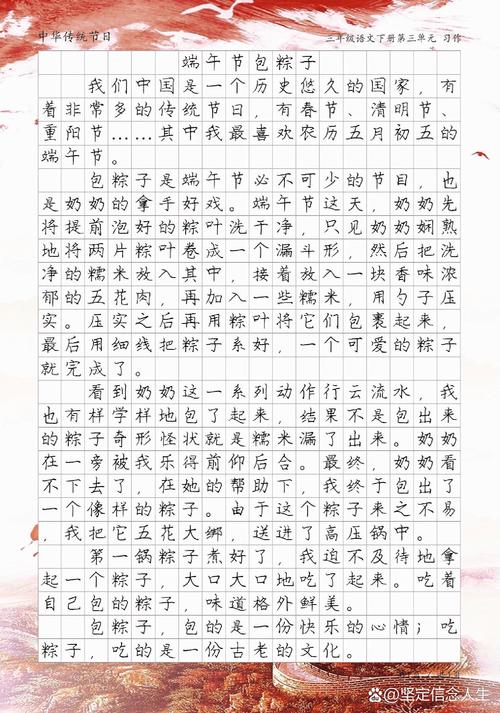 中华传统节日
三年级语文下册第三单元 习作
端午节包粽子
我们中国是一个历史悠久的国家，有
着非常多的传统节日，有春节、清明节、
重阳节……其中我最喜欢农历五月初五的
端午节。
包粽子是端午节必不可少的节目，也
是奶奶的拿手好戏。端午节这天，奶奶先
将提前泡好的粽叶洗干净，只见奶奶娴熟
地将两片粽叶卷成一个漏斗形，然后把洗
净的糯米放入其中，接着放入一块香味浓
郁的五花肉，再加入一些糯米，用勺子压
实。压实之后再用粽叶将它们包裹起来，
最后用细线把粽子系好，一个可爱的粽子
就完成了。
看到奶奶这一系列动作行云流水，我
也有样学样地包了起来，结果不是包出来
的粽子奇形怪状就是糯米漏了出来。奶奶
在一旁被我乐得前仰后合。最终，奶奶看
不下去了，在她的帮助下，我终于包出了
一个像样的粽子。由于这个粽子来之不易
，我把它五花大绑，送进了高压锅中。
第一锅粽子煮好了，我迫不及待地拿
起一个粽子，大口大口地吃了起来。吃着
自己包的粽子，味道格外鲜美。
包粽子，包的是一份快乐的心情；吃
粽子，吃的是一份古老的文化。
@坚定信念人生